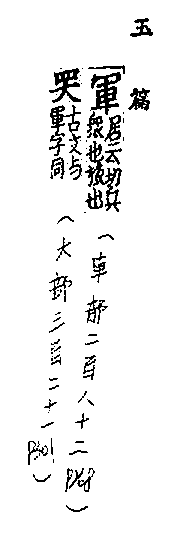 五篇
「軍居云切兵衆也旅也（車部二百八十二P68）
𠦮古文与軍字同（大部三百二十一P301）